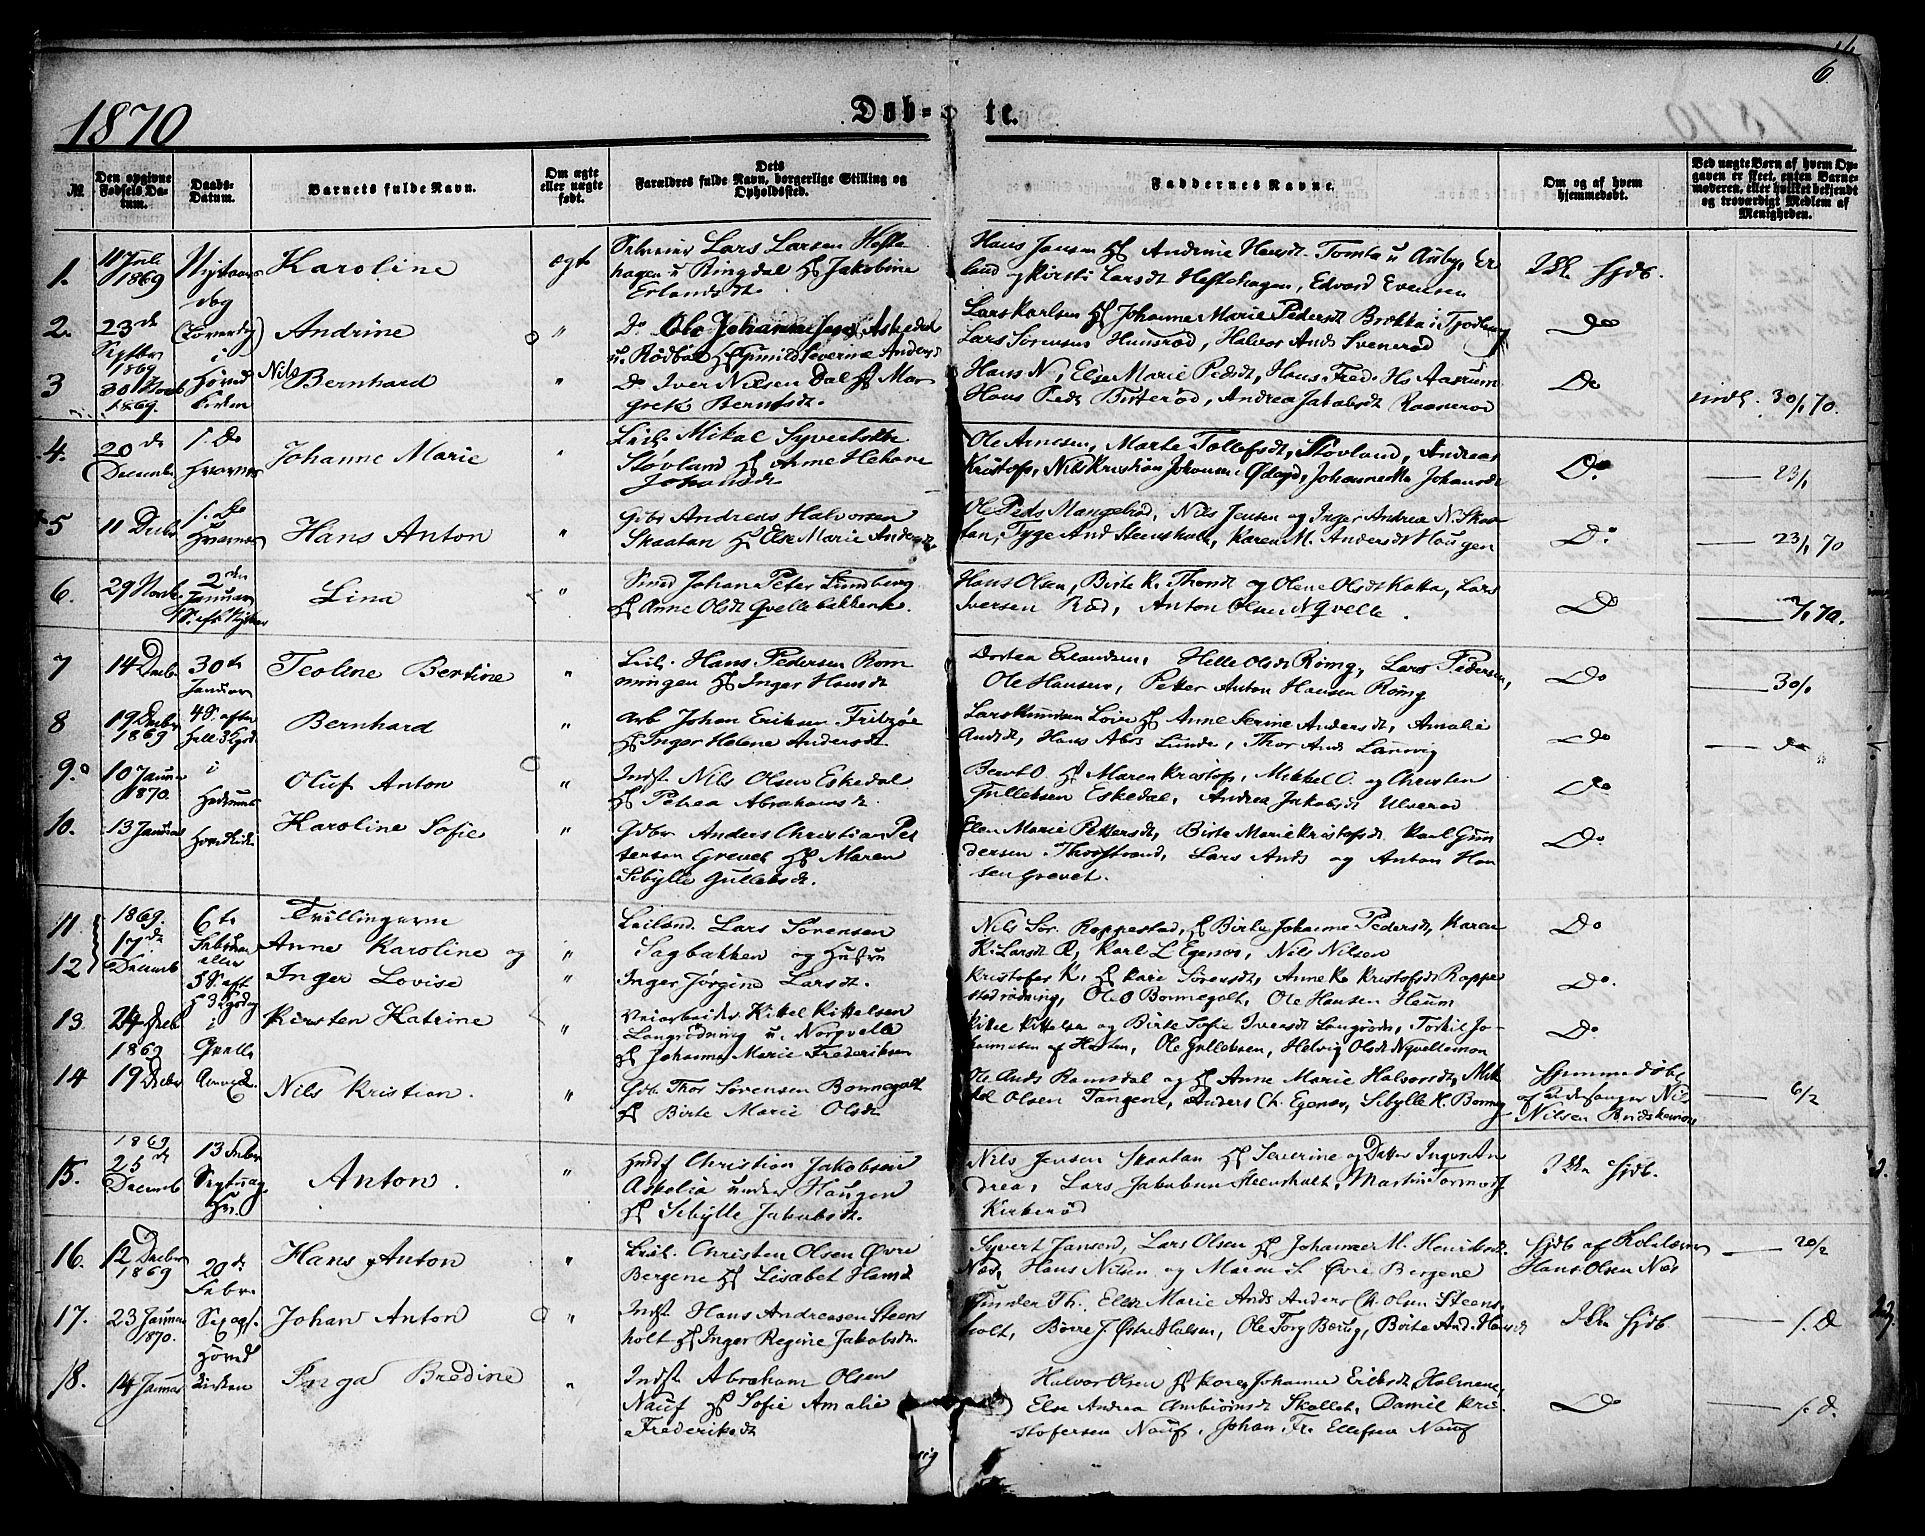 6
1870
Døb-
te.
№
Den opgivne Fødsels Datum.
Daabs-Datum.
Barnets fulde Navn.
Om ægte eller uægte født.
Dets Forældres fulde Navn, borgerlige Stilling og Opholdssted.
Faddernes Navne.
Om og af hvem hjemmedøbt.
Ved uægte Børn af hvem Opgaven er skeet, enten Barnemoderen, eller hvilket bekjendt og troværdigt Medlem af Menigheden.
1. 11 Juli 1869 Karoline ægte Lars Larsen Hefte
hagen u Ringdal Jakobine
Erlandsdt
Hans Jansen Andrine Hansdt. Tomta u Auby, Er
land Kirsti Larsdt Heftehagen, Edvard Evensen
Ikke Hjdb.
2. 23de Septbr 1869 Andrine " Do Ole Johannesen Askedal
u. Rødbøl Gunild Severine Andersdt
Lars Karlsen Johanne Marie Pedersdt Brekka i Tjodling
Lars Sørensen Hunsrød, Halvor Ands Svenerød
Do
3 30 Novb 1869. Hoved kirken Nils Bernhard " Do Iver Nilsen Dal Mar
grete Berntsdt.
Hans N, Else Marie Pedsdt, Hans Fred. Hs Aasrum
Hans Peds Bisterød, Andrea Jakobsdt
Do 30/1 70.
4. 20de Decemb 1. Do Hvarnes Johanne Marie " Mikal Syvertsen
Støvland Anne Helene
Johansdt
Ole Arnesen, Marte Tollefsdt, Støvland, Andreas
Kristofs, Nils Kristian
Do 23/1
5 11 Decbr 1. Do Hvarnes Hans Anton " Gdbr Andreas Halvorsen
Skaatan Else Marie Andersdt
Ole Peds Mangelrød, Nils Jensen og Inger Andrea N. Skaa
tan, Tyge And Steinsholt, Karen M. Andersdt Haugen
Do 23/1 70
6. 29 Novb 2den Januar Lina " Johan Peter Lundberg
Anne Olsdt Qvellebakkene.
Hans Olsen, Birte K. Thorsdt og Olene Olsdt Lars
Iversen Rød, Anton Olsen NQvelle.
Do
7 14 Decbr 30te Januar Teoline Bertine " Hans Pedersen Rom
mingen Inger Hansdt
Dortea Erlandsen, Helle Olsdt Rømg, Lars Pedersen,
Ole Hansen, Petter Anton Hansen Rømg
Do 30/1
8 19 Decbr 1869 4 S. efter Hell 3 Kgsd. Bernhard " Arb Johan Eriksen Fritzøe
Inger Helene Andersdt
Lars Knudsen Løve Anne Serine Andersdt, Amalie
Andsdt, Hans Abs Lunde, Thor Ands Laurvig
Do do
9. 10 Januar 1870. i Hedrum Oluf Anton " Indst Nils Olsen Eskedal
Petrea Abrahamsdt.
Bernt O Maren Kristofs, Mikkel O. og Christen
Gulleksen Eskedal, Andrea Jakobsdt Ulserød
Do
10. 13 Januar Hovedkirk Karoline Sofie " Gdbr Anders Christian Pet
tersen Grevet Maren
Sibylle Gulleksdt.
Elen Marie Pettersdt, Birte Marie Kristofsdt Karl Gun
dersen Thorstrand, Lars Ands og Anton Han
sen Grevet.
Do
11. 12 1869. 17de Decemb 6te Februar eller 5 S. eft H 3 Kgsdag Tvillingerne
Anne Karoline og
Inger Lovise
" " Leiland. Lars Sørensen
Sagbakken og Hustru
Inger Jørgine Larsdt.
Nils Sør. Roppestad, Birte Johanne Pedersdt, Karen
K. Larsdt R, Karl L Egenes, Nils Nilsen
Do
Kristofer K. Kari Sørensdt, Anne Ka Kristofsdt Roppe
stadrødning, Ole O Bonnegolt, Ole Hansen Haum
Do.
13. 24 Decb 1869 i Qvelle Kirsten Katrine " Veiarbeider Kittel Kittelsen
Langrødning u. Norqvelle
Johanne Marie Frederiksen
Kittel Kittelsen og Birte Sofie Iversdt Langrødn, Torkil Jo-
hannesen af Hosten, Ole Gulleksen, Helvig Olsdt Nqvellemon
Do
14 19 Decbr Nils Kristian. " Gdb. Thor Sørensen Bonnegolt
Birte Marie Olsdt
Ole Ands Ramsdal og Anne Marie Halvorsdt, Mik
kel Olsen Tangene, Anders Ch. Egenes, Sibylle K. Bonneg
Hjemmedøbt
af Kirkesanger Nils
Nilsen
6/2
15. 1869 25de Decemb 13 Febr Anton. " Husmd Christian Jakobsen
Askelia under Haugen
Sibylle Jakobsdt.
Nils Jensen Skaatan Severine og Datter Inger An
drea, Lars Jakobsen Steensholt, Martin Tormodsen
Kirkerød
Ikke Hjdb.
16. 12 Decbr 1869 20de Febr. Hans Anton " Christen Olsen Øvre
Bergene Lisabet Hansdt
Syvert Jansen, Lars Olsen Johanne M. Henriksdt
Næs, Hans Nilsen og Maren S. Øvre Bergene
Hjdb af
Hans Olsen Næs
20/2
17. 23 Januar 1870. Johan Anton " Indst Hans Andreasen Steens
holt Inger Regine Jakobsdt.
Gunder Th. Else Marie Ands Anders Ch. Olsen Steens-
holt, Børre J. Østre Halsen, Ole Torg Berby, Birte And. Hansdt
Ikke Hjdb s. D
18. 14 Januar Hoved kirken Inga Bredine " Indst Abraham Olsen
Nauf Sofie Amalie
Frederiksdt
Halvor Olsen Karen Johanne Eriksdt Holmene,
Else Andrea Ambiørnsdt Skollet, Daniel Kri
stofersen Nauf, Johan Fr. Ellefsen Nauf
Do s. d.